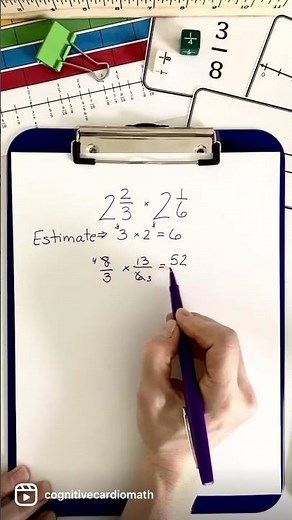 3/8
1/4
2 2/3 × 2 1/6
Estimate ⇒ 3 × 2 = 6
4 8/3 × 13/6 3 = 52
cognitivecardiomath